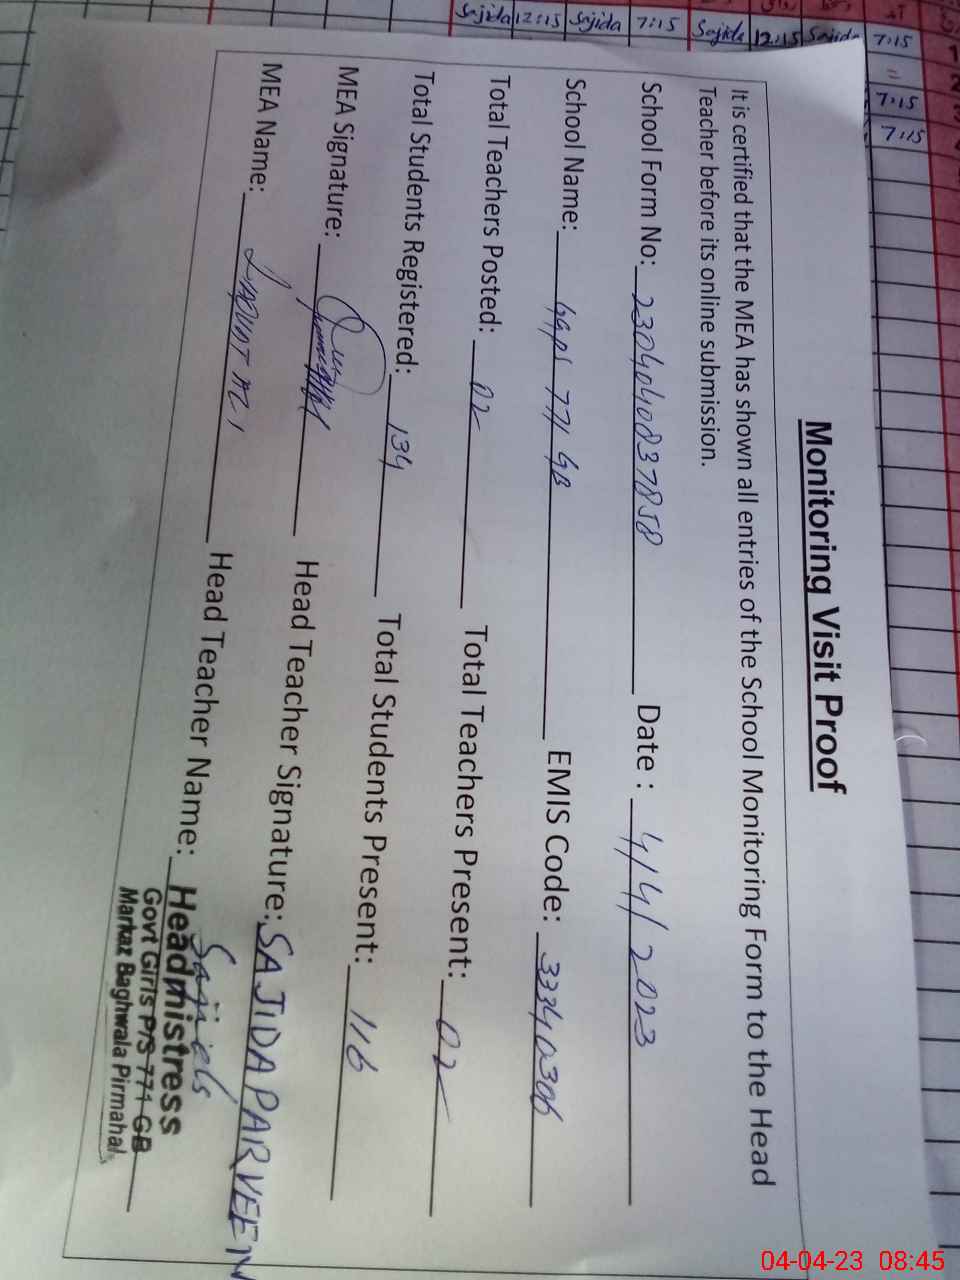 Sajida 12:15 Sajida 7:15 Sajida 12:15 Sajida 7:15
7:15
7:15
Monitoring Visit Proof
It is certified that the MEA has shown all entries of the School Monitoring Form to the Head
Teacher before its online submission.
School Form No: 2304040837858 Date : 4/4/2023
School Name: GGPS 771 GB EMIS Code: 33340306
Total Teachers Posted: 02 Total Teachers Present: 02
Total Students Registered: 134 Total Students Present: 116
MEA Signature: Head Teacher Signature: SAJIDA PARVEEN
MEA Name: Head Teacher Name: Sajida
Headmistress
Govt Girls P/S 771 GB
Markaz Baghwala Pirmahal
04-04-23 08:45